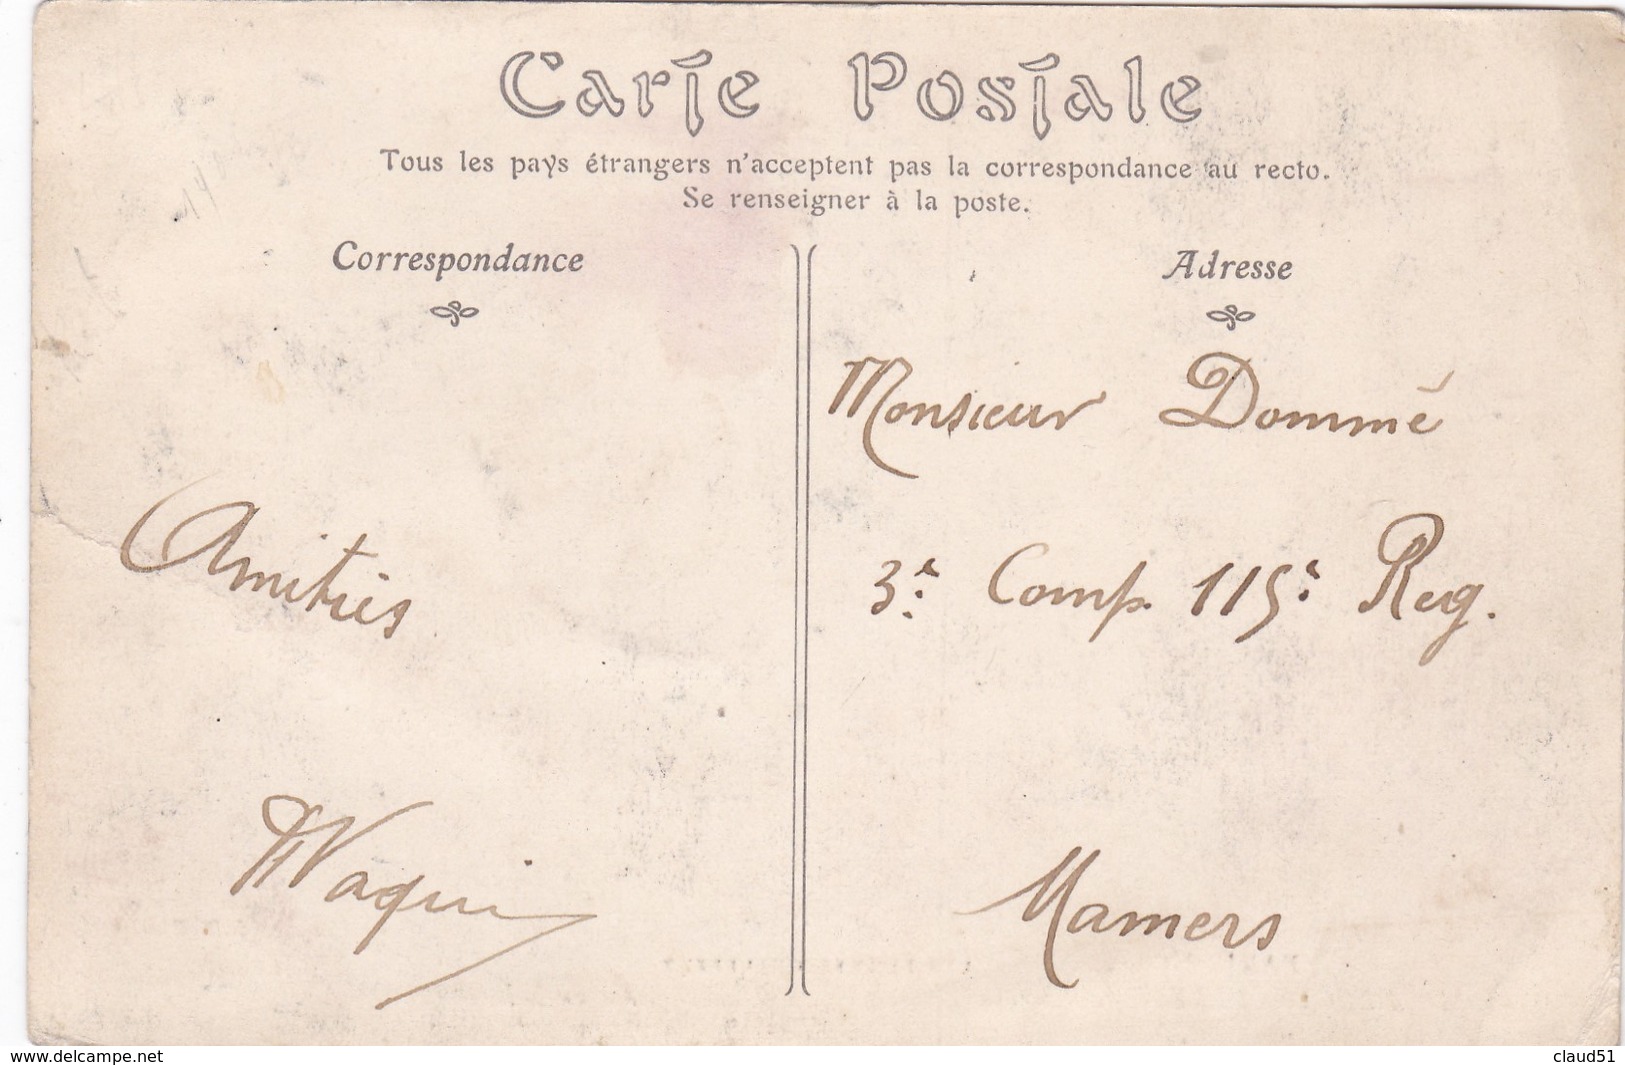 Carte Postale
Tous les pays étrangers n'acceptent pas la correspondance au recto.
Se renseigner à la poste.
Correspondance
Amitiés
Waquin
Adresse
Monsieur Dommé
3e Comp. 115e Reg.
Mamers
www.delcampe.net
claud51